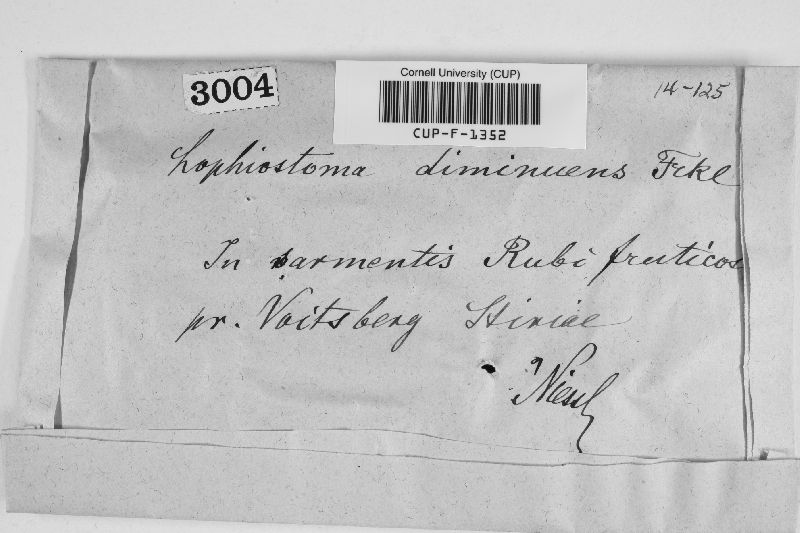 3004
Cornell University (CUP)
CUP-F-1352
14-125
Lophiostoma diminuens Fckl
In sarmentis Rubi fruticos
pr. Voitsberg Stiriae
Niessl